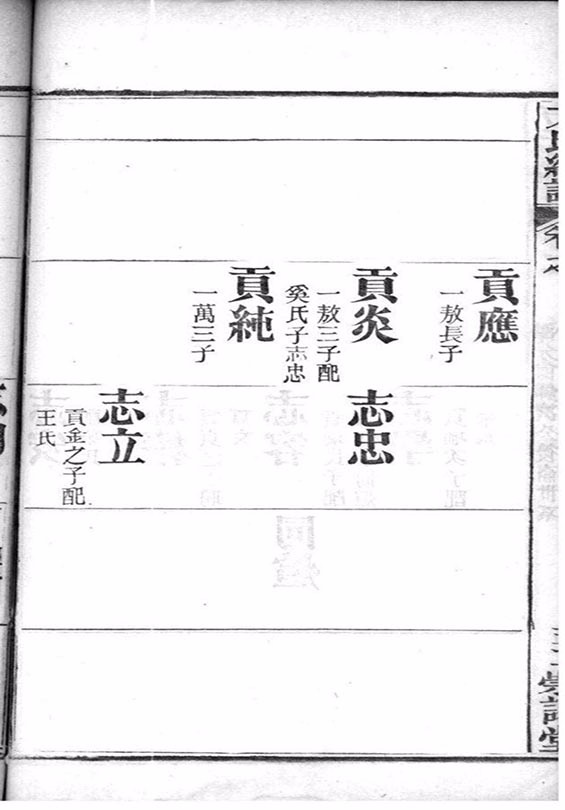 貢應
一敖長子
貢炎
一敖三子配
奚氏子志忠
志忠
貢純
一萬三子
志立
貢金之子配
王氏